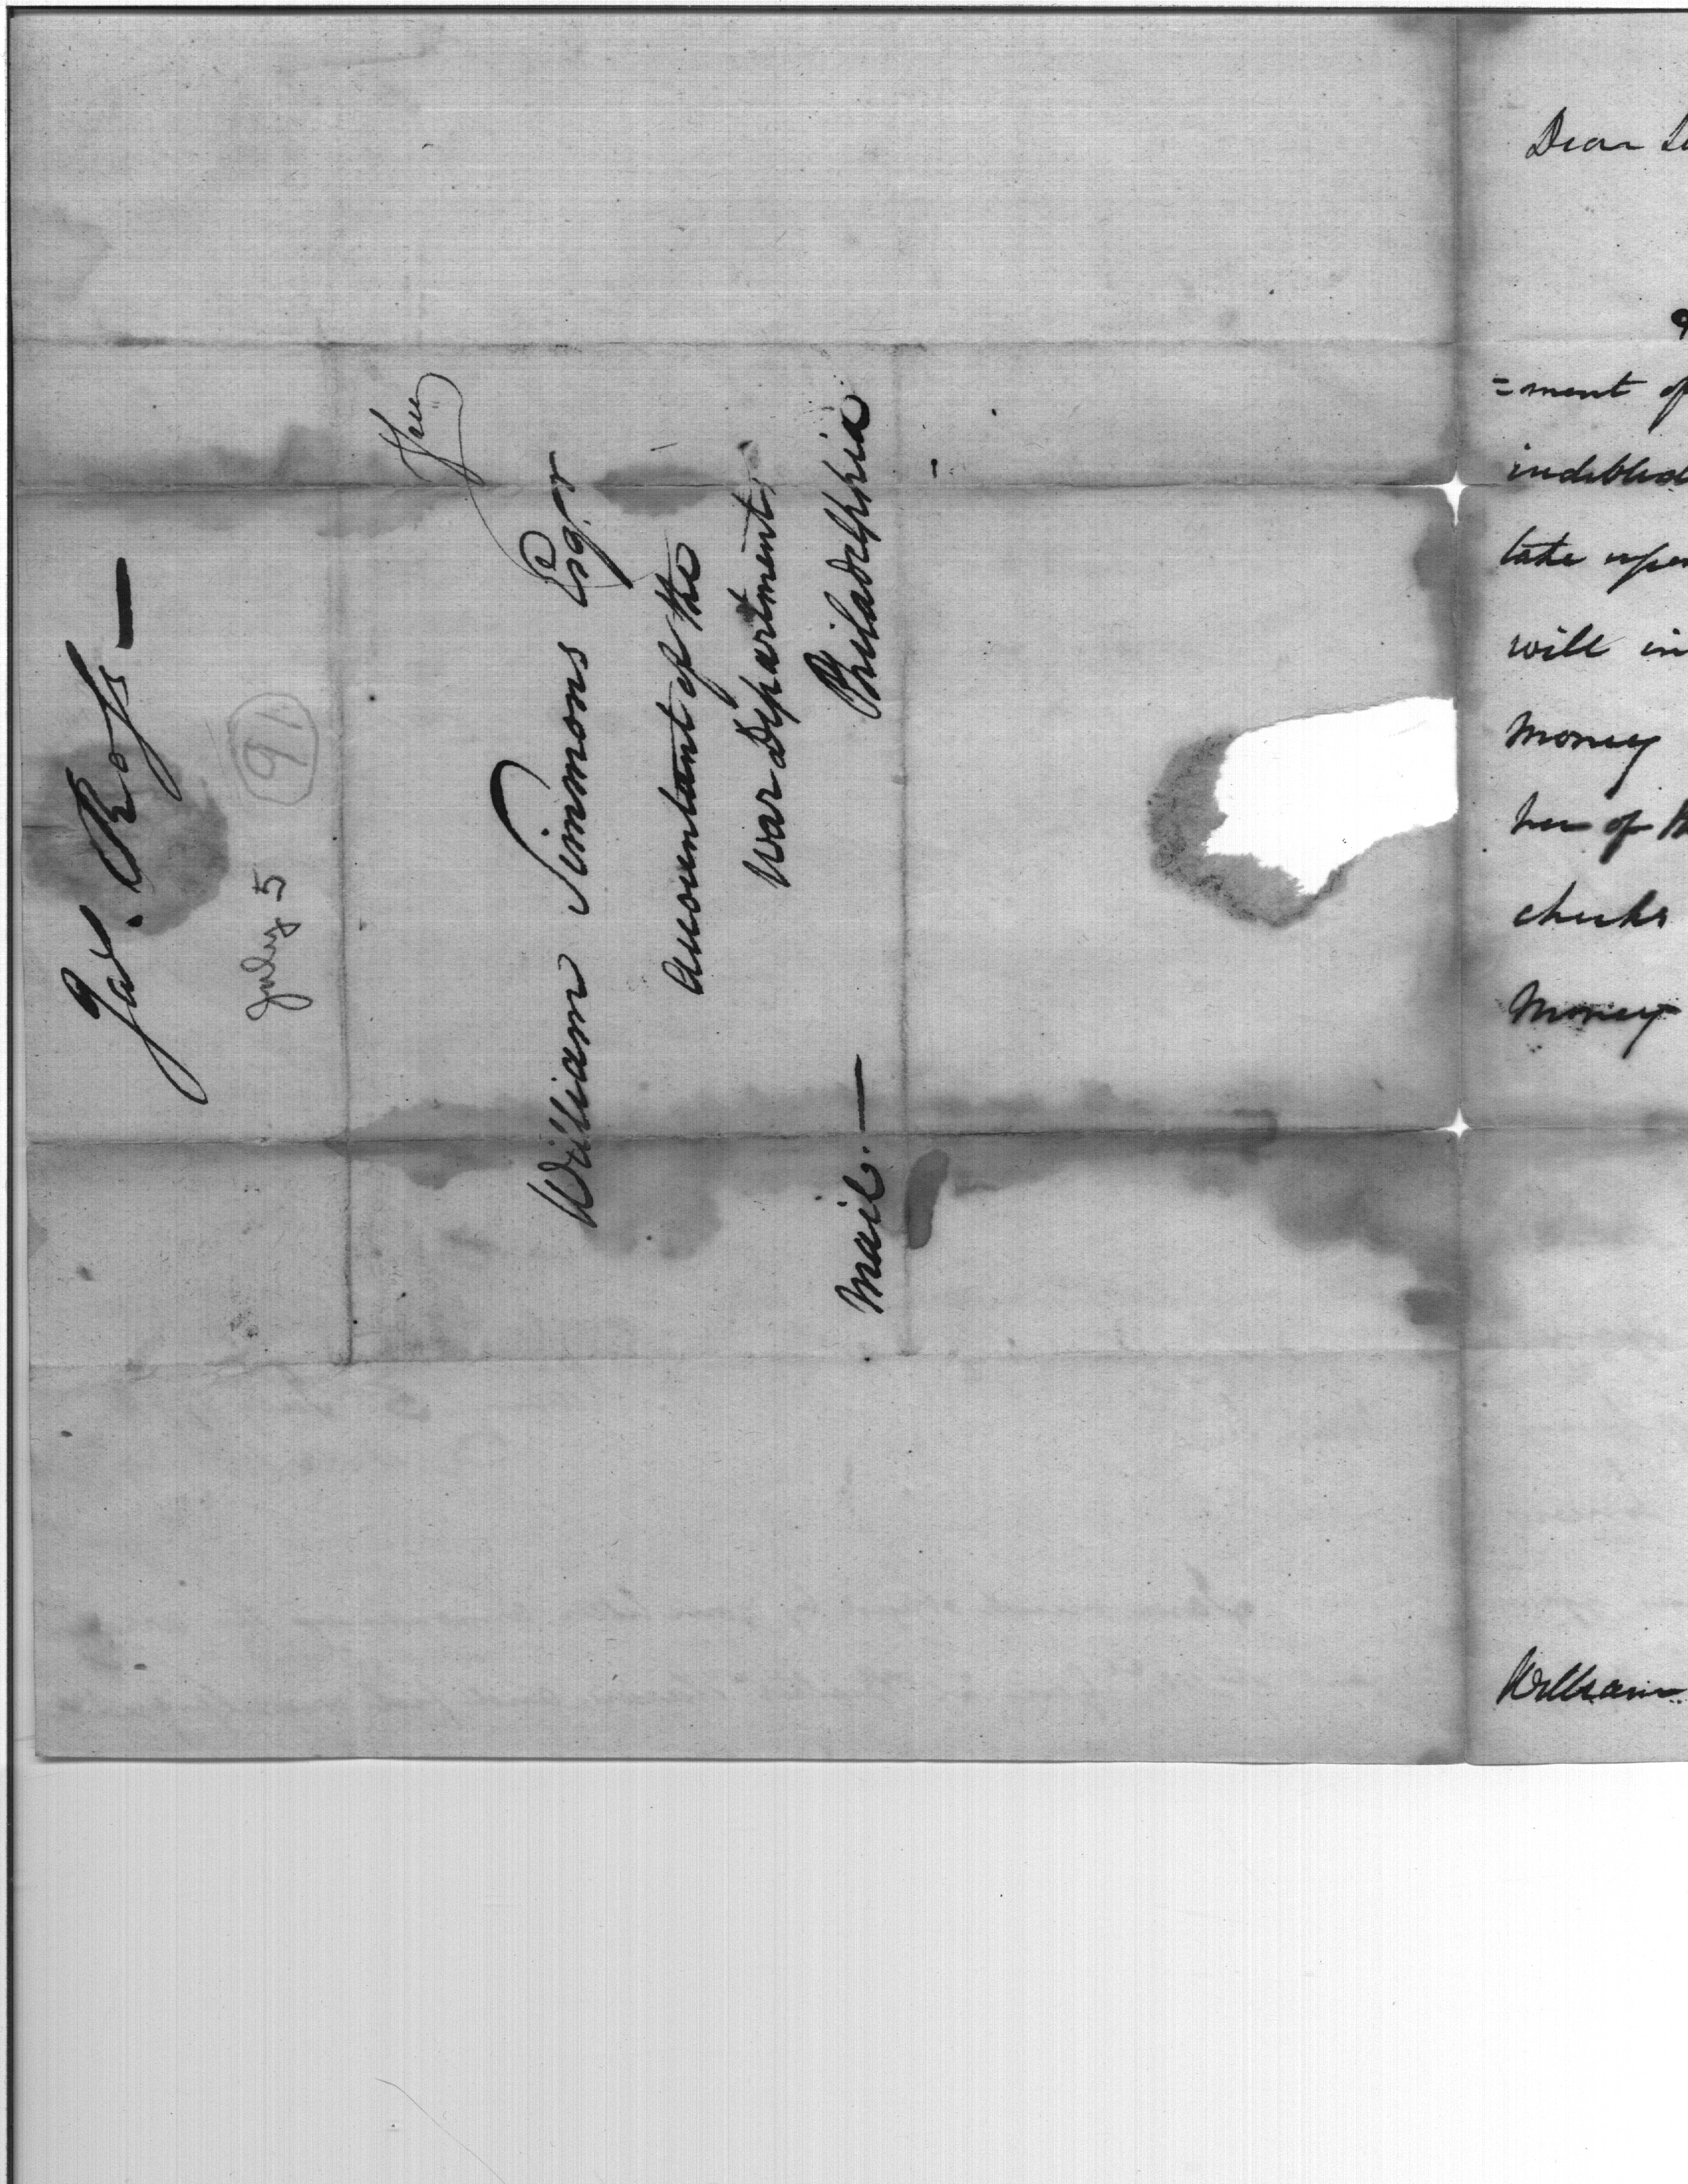 Jas. Ross —
July 5
91
Free
William Simmons Esqr
Accountant of the
War Department
Philadelphia
Mail. —
Dear
=ment of
indebted
take upon
will in
Money
her of
checks
Money
William